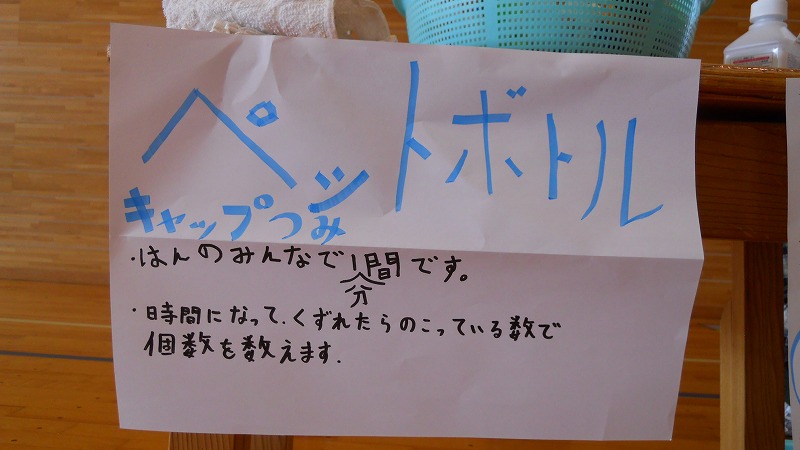 ペットボトル
キャップつみ
・はんのみんなで1分間です。
・時間になって、くずれたらのこっている数で
個数を数えます.